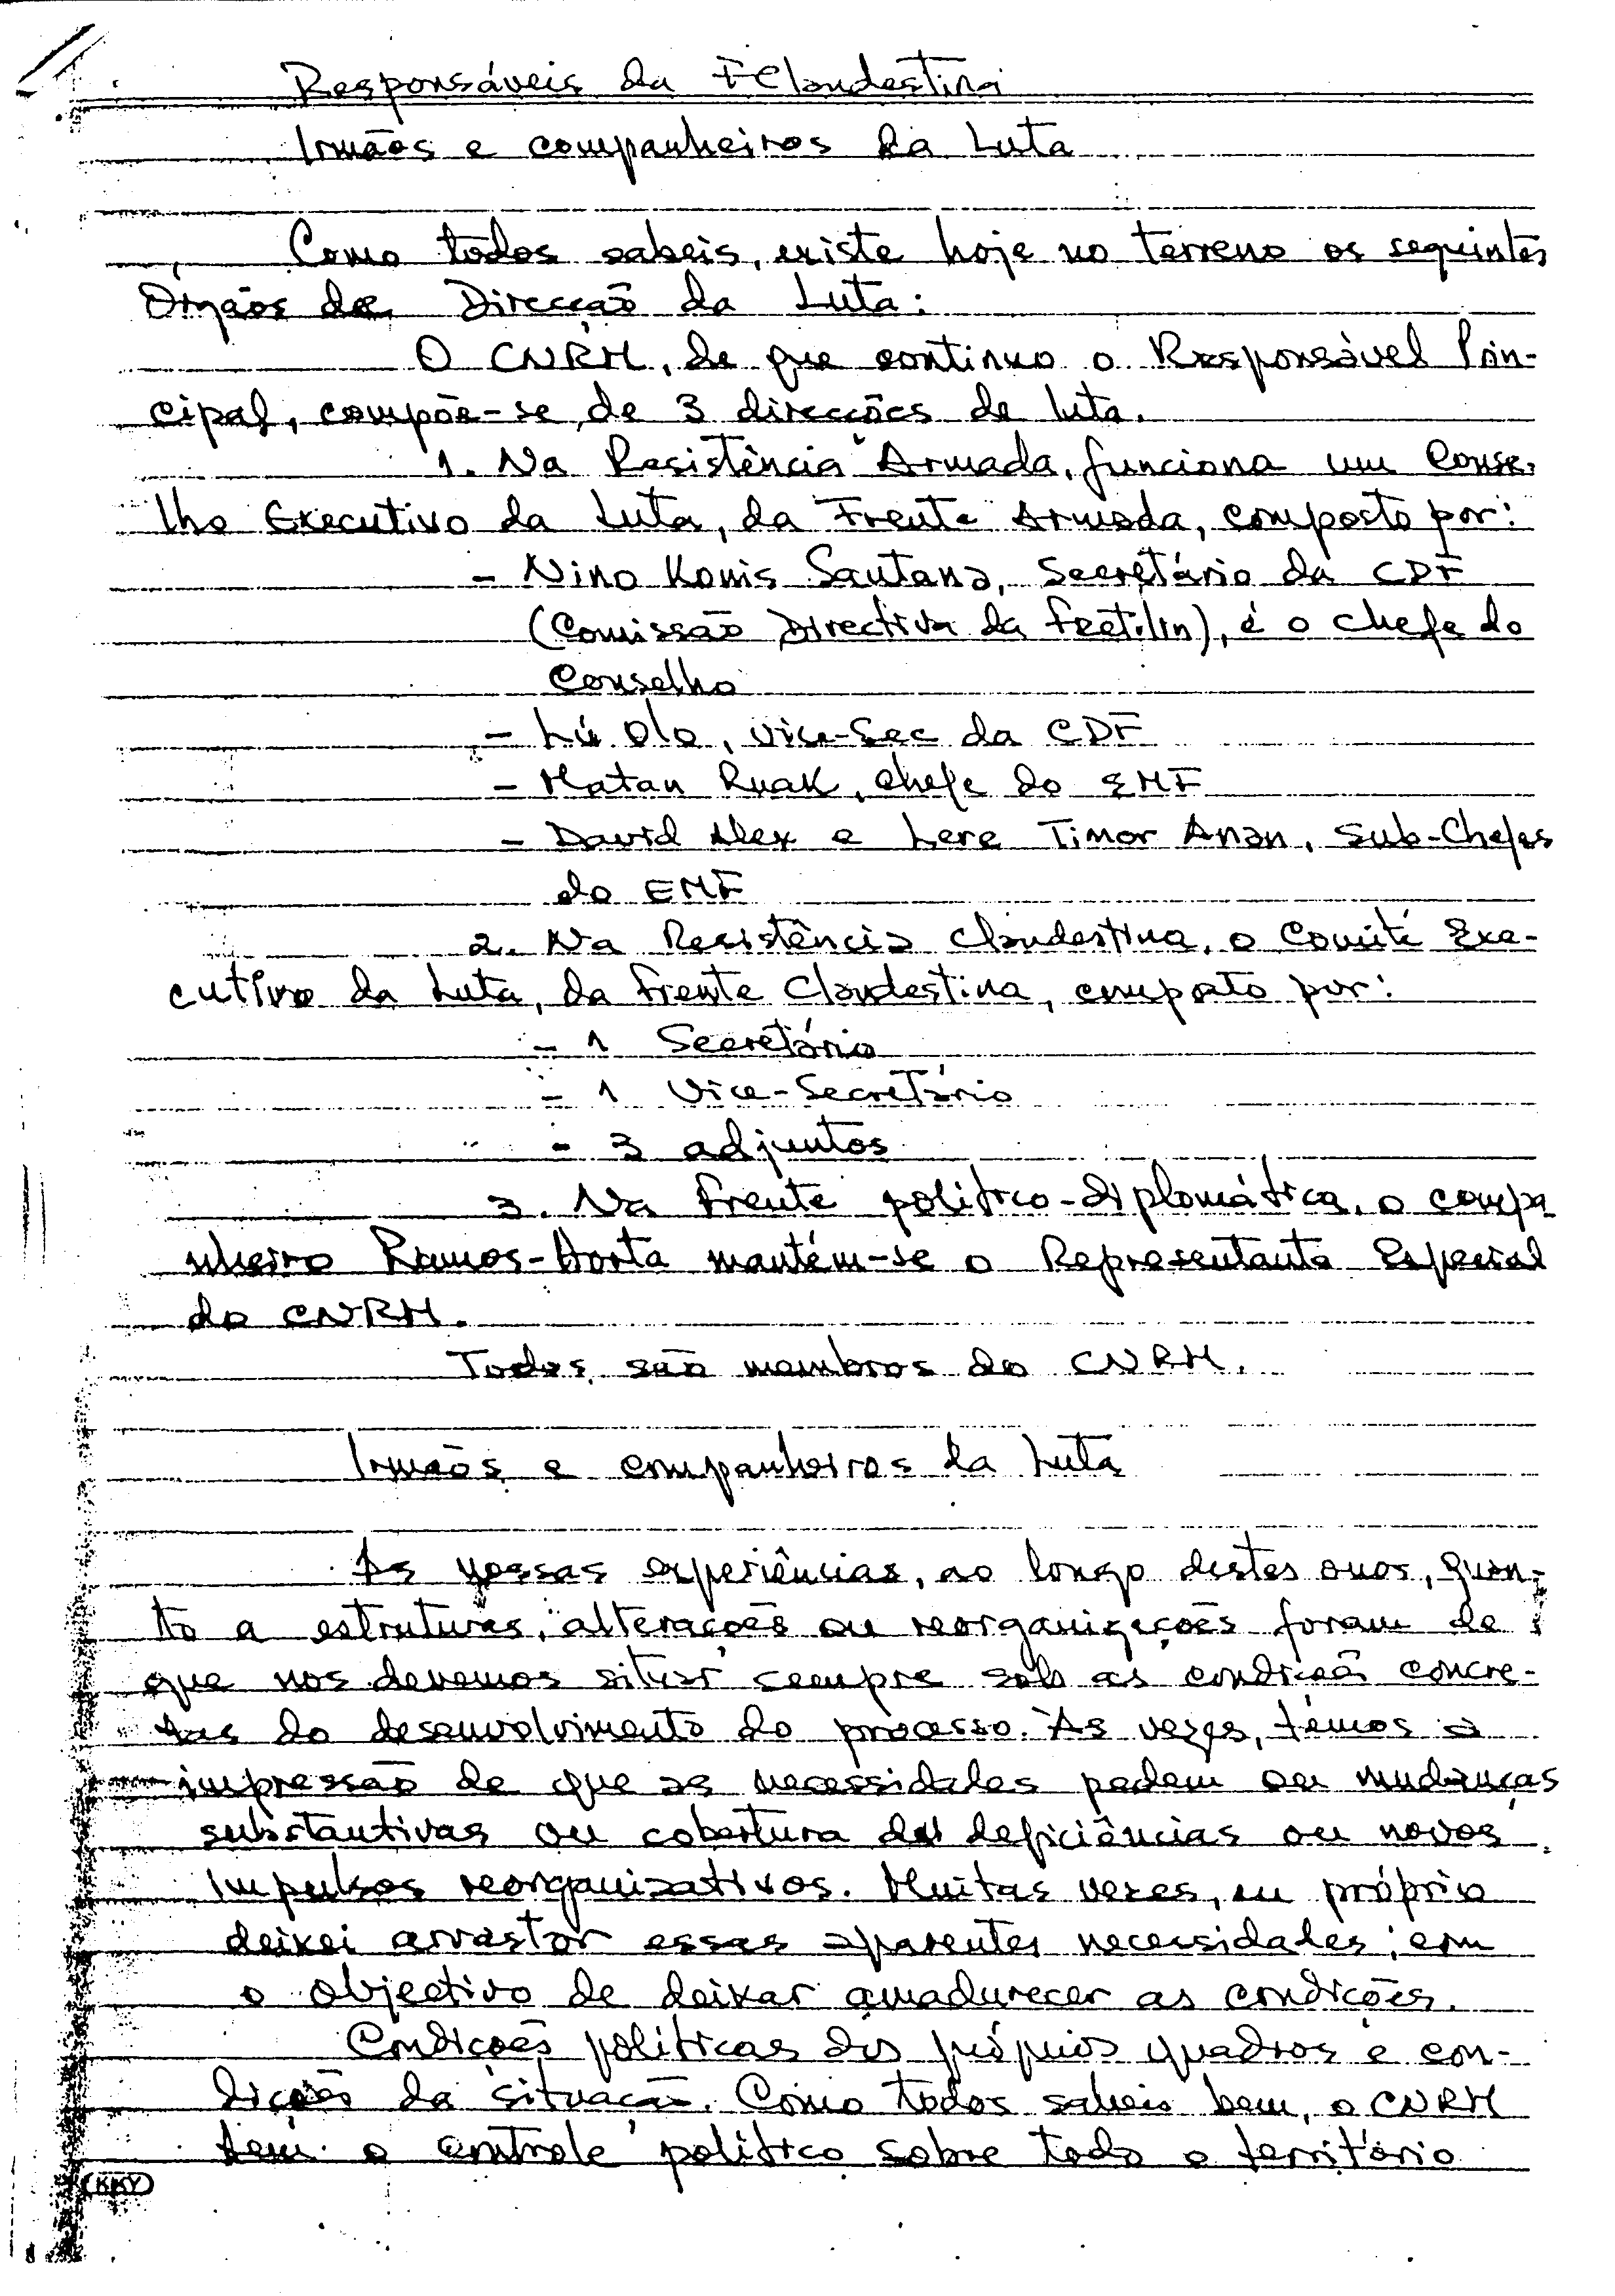 Responsáveis da F Clandestina
Irmãos e companheiros da Luta
Como todos sabeis, existe hoje no terreno os seguintes
Órgãos de Direcção da Luta:
O CNRM, de que continuo o Responsável Prin-
cipal, compõe-se de 3 direcções de luta.
1. Na Resistência Armada, funciona um Conse-
lho Executivo da Luta, da Frente Armada, composto por:
- Nino Konis Santana, Secretário da CDF
(Comissão Directiva da Fretilin), é o chefe do
Conselho
- Lú Olo, Vice-Sec da CDF
- Matan Ruak, chefe do EMF
- David Alex e Lere Timor Anan, Sub-Chefes
do EMF
2. Na Resistência Clandestina, o Comité Exe-
cutivo da Luta, da Frente Clandestina, composto por:
- 1 Secretário
- 1 Vice-Secretário
- 3 adjuntos
3. Na Frente político-diplomática, o compa
nheiro Ramos-Horta mantém-se o Representante Especial
do CNRM.
Todos são membros do CNRM.
Irmãos e companheiros da Luta
As nossas experiências, ao longo destes anos, quan-
to a estruturas, alterações ou reorganizações foram de
que nos devemos situar sempre sob as condições concre-
tas do desenvolvimento do processo. Às vezes, temos a
impressão de que as necessidades pedem ou mudanças
substantivas ou cobertura das deficiências ou novos
impulsos reorganizativos. Muitas vezes, eu próprio
deixei arrastar essas aparentes necessidades, com
o objectivo de deixar amadurecer as condições.
Condições políticas dos próprios quadros e con-
dições da situação. Como todos sabeis bem, o CNRM
tem o controle político sobre todo o território